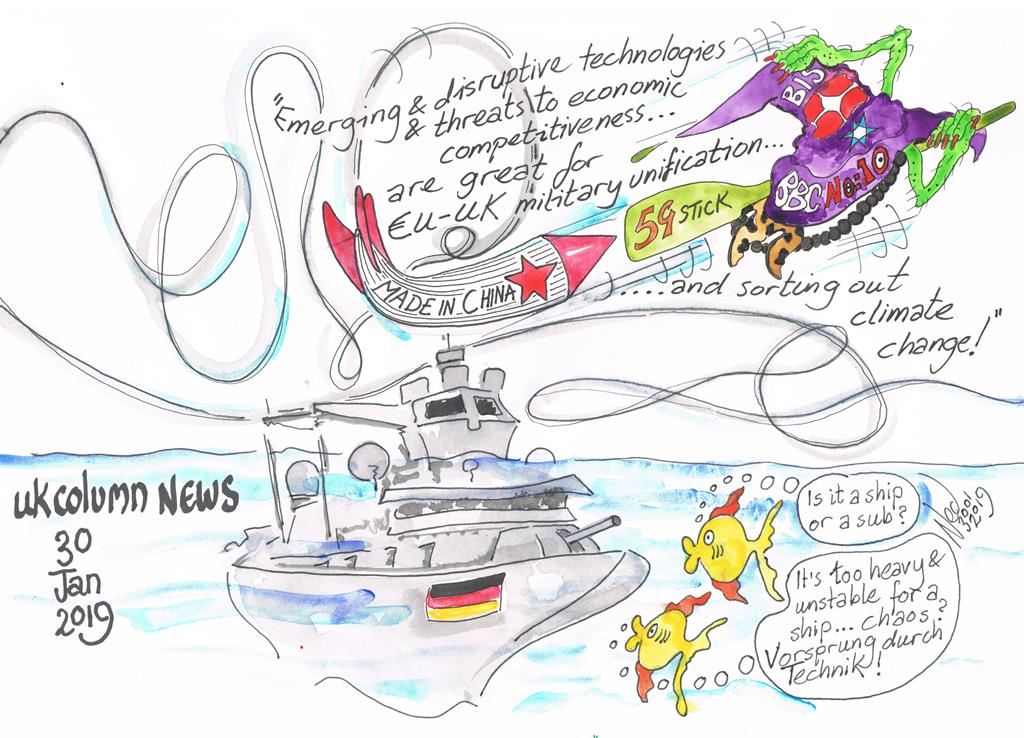 "Emerging & disruptive technologies
& threats to economic
competitiveness...
are great for
EU-UK mititary unification...
.....and sorting out
climate
change!"
BIS
BBC No:10
5G STICK
MADE IN CHINA
UKCOLUMN NEWS
30
Jan
2019
Is it a ship
or a sub?
3001
2019
It's too heavy &
unstable for a
ship... chaos?
Vorsprung durch
Technik!